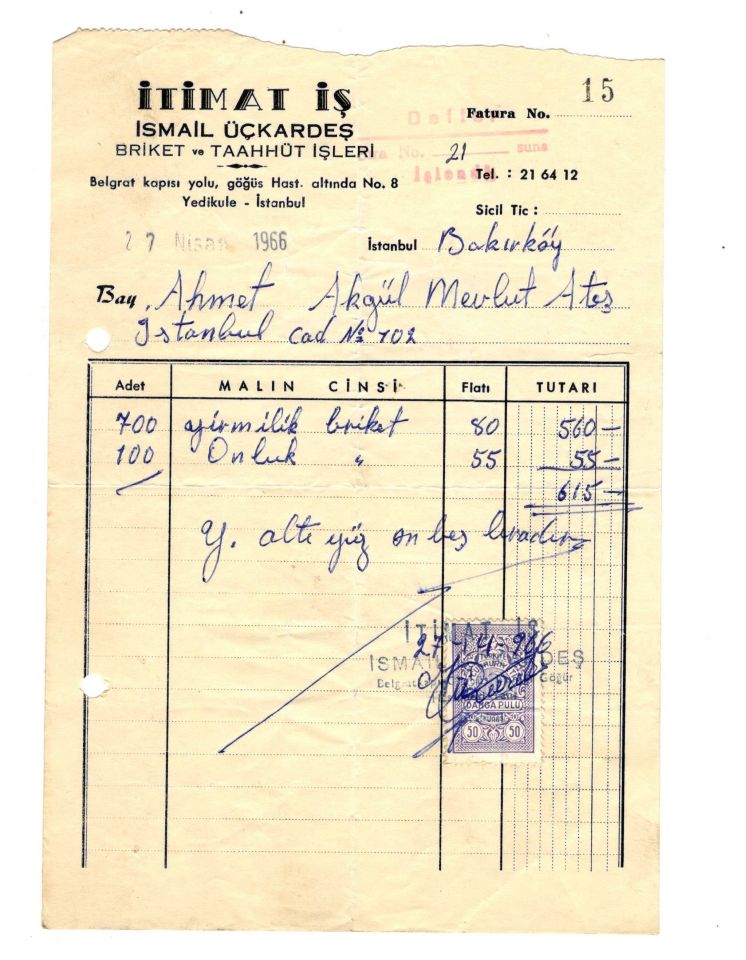 15
İTİMAT İŞ
Fatura No.
İSMAİL ÜÇKARDEŞ
Defter
BRİKET ve TAAHHÜT İŞLERİ
No. 21 suna
İşlendi
Tel. : 21 64 12
Belgrat kapısı yolu, göğüs Hast. altında No. 8
Yedikule - İstanbul
Sicil Tic :
27 Nisan 1966
İstanbul Bakırköy
Bay. Ahmet Akgül Mevlut Ateş
İstanbul Cad № 102
Adet MALIN CİNSİ Fiatı TUTARI
700 yirmilik briket 80 560 —
100 Onluk " 55 55 —
615 —
Y. altı yüz on beş liradır
İTİMAT İŞ
27-4-966
İSMAİL DEŞ
Belgrat Göğür
DAMGA PULU
50 50